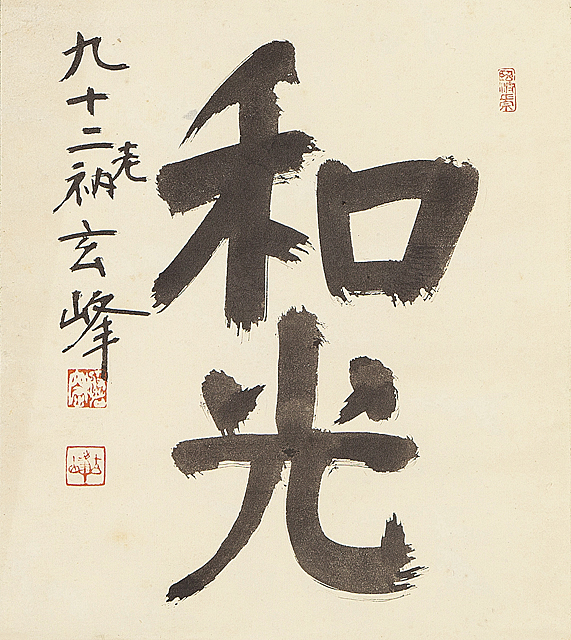 和光
九十二老衲玄峰